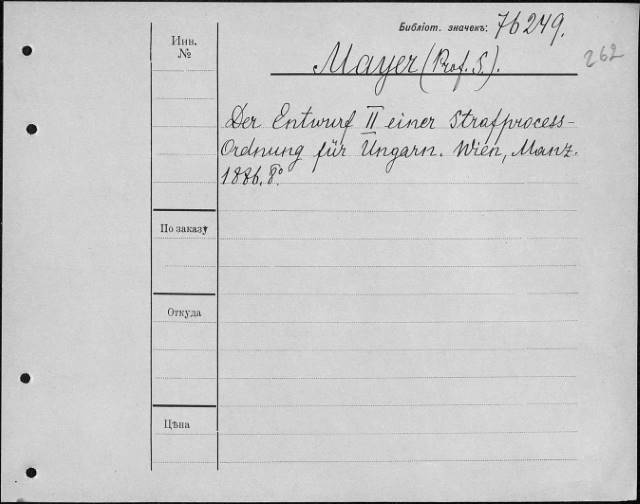 Библіот. значекъ: 76249.
262
Инв. №
Mayer (Prof. S.).
Der Entwurf II einer Strafprocess-
Ordnung für Ungarn. Wien, Manz.
1886. 8º.
По заказу
Откуда
Цѣна